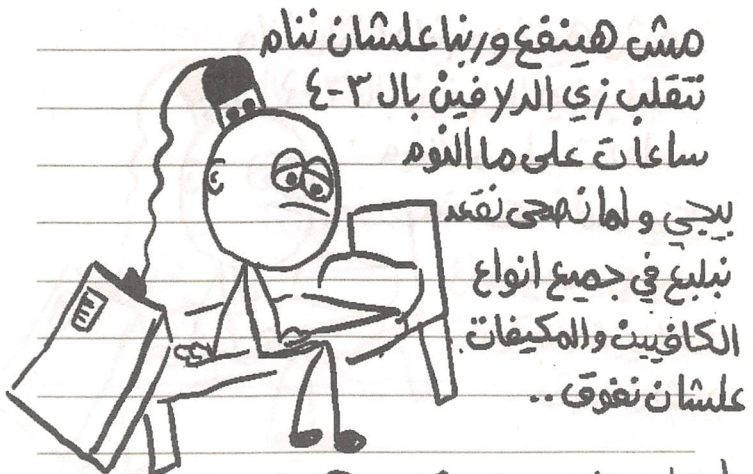 مش هينفع وربنا علشان ننام
نتقلب زي الدلافين بال ٣-٤
ساعات على ما النوم
ييجي و لما نصحى نقعد
نبلبع في جميع انواع
الكافيين والمكيفات
علشان نفوق ..